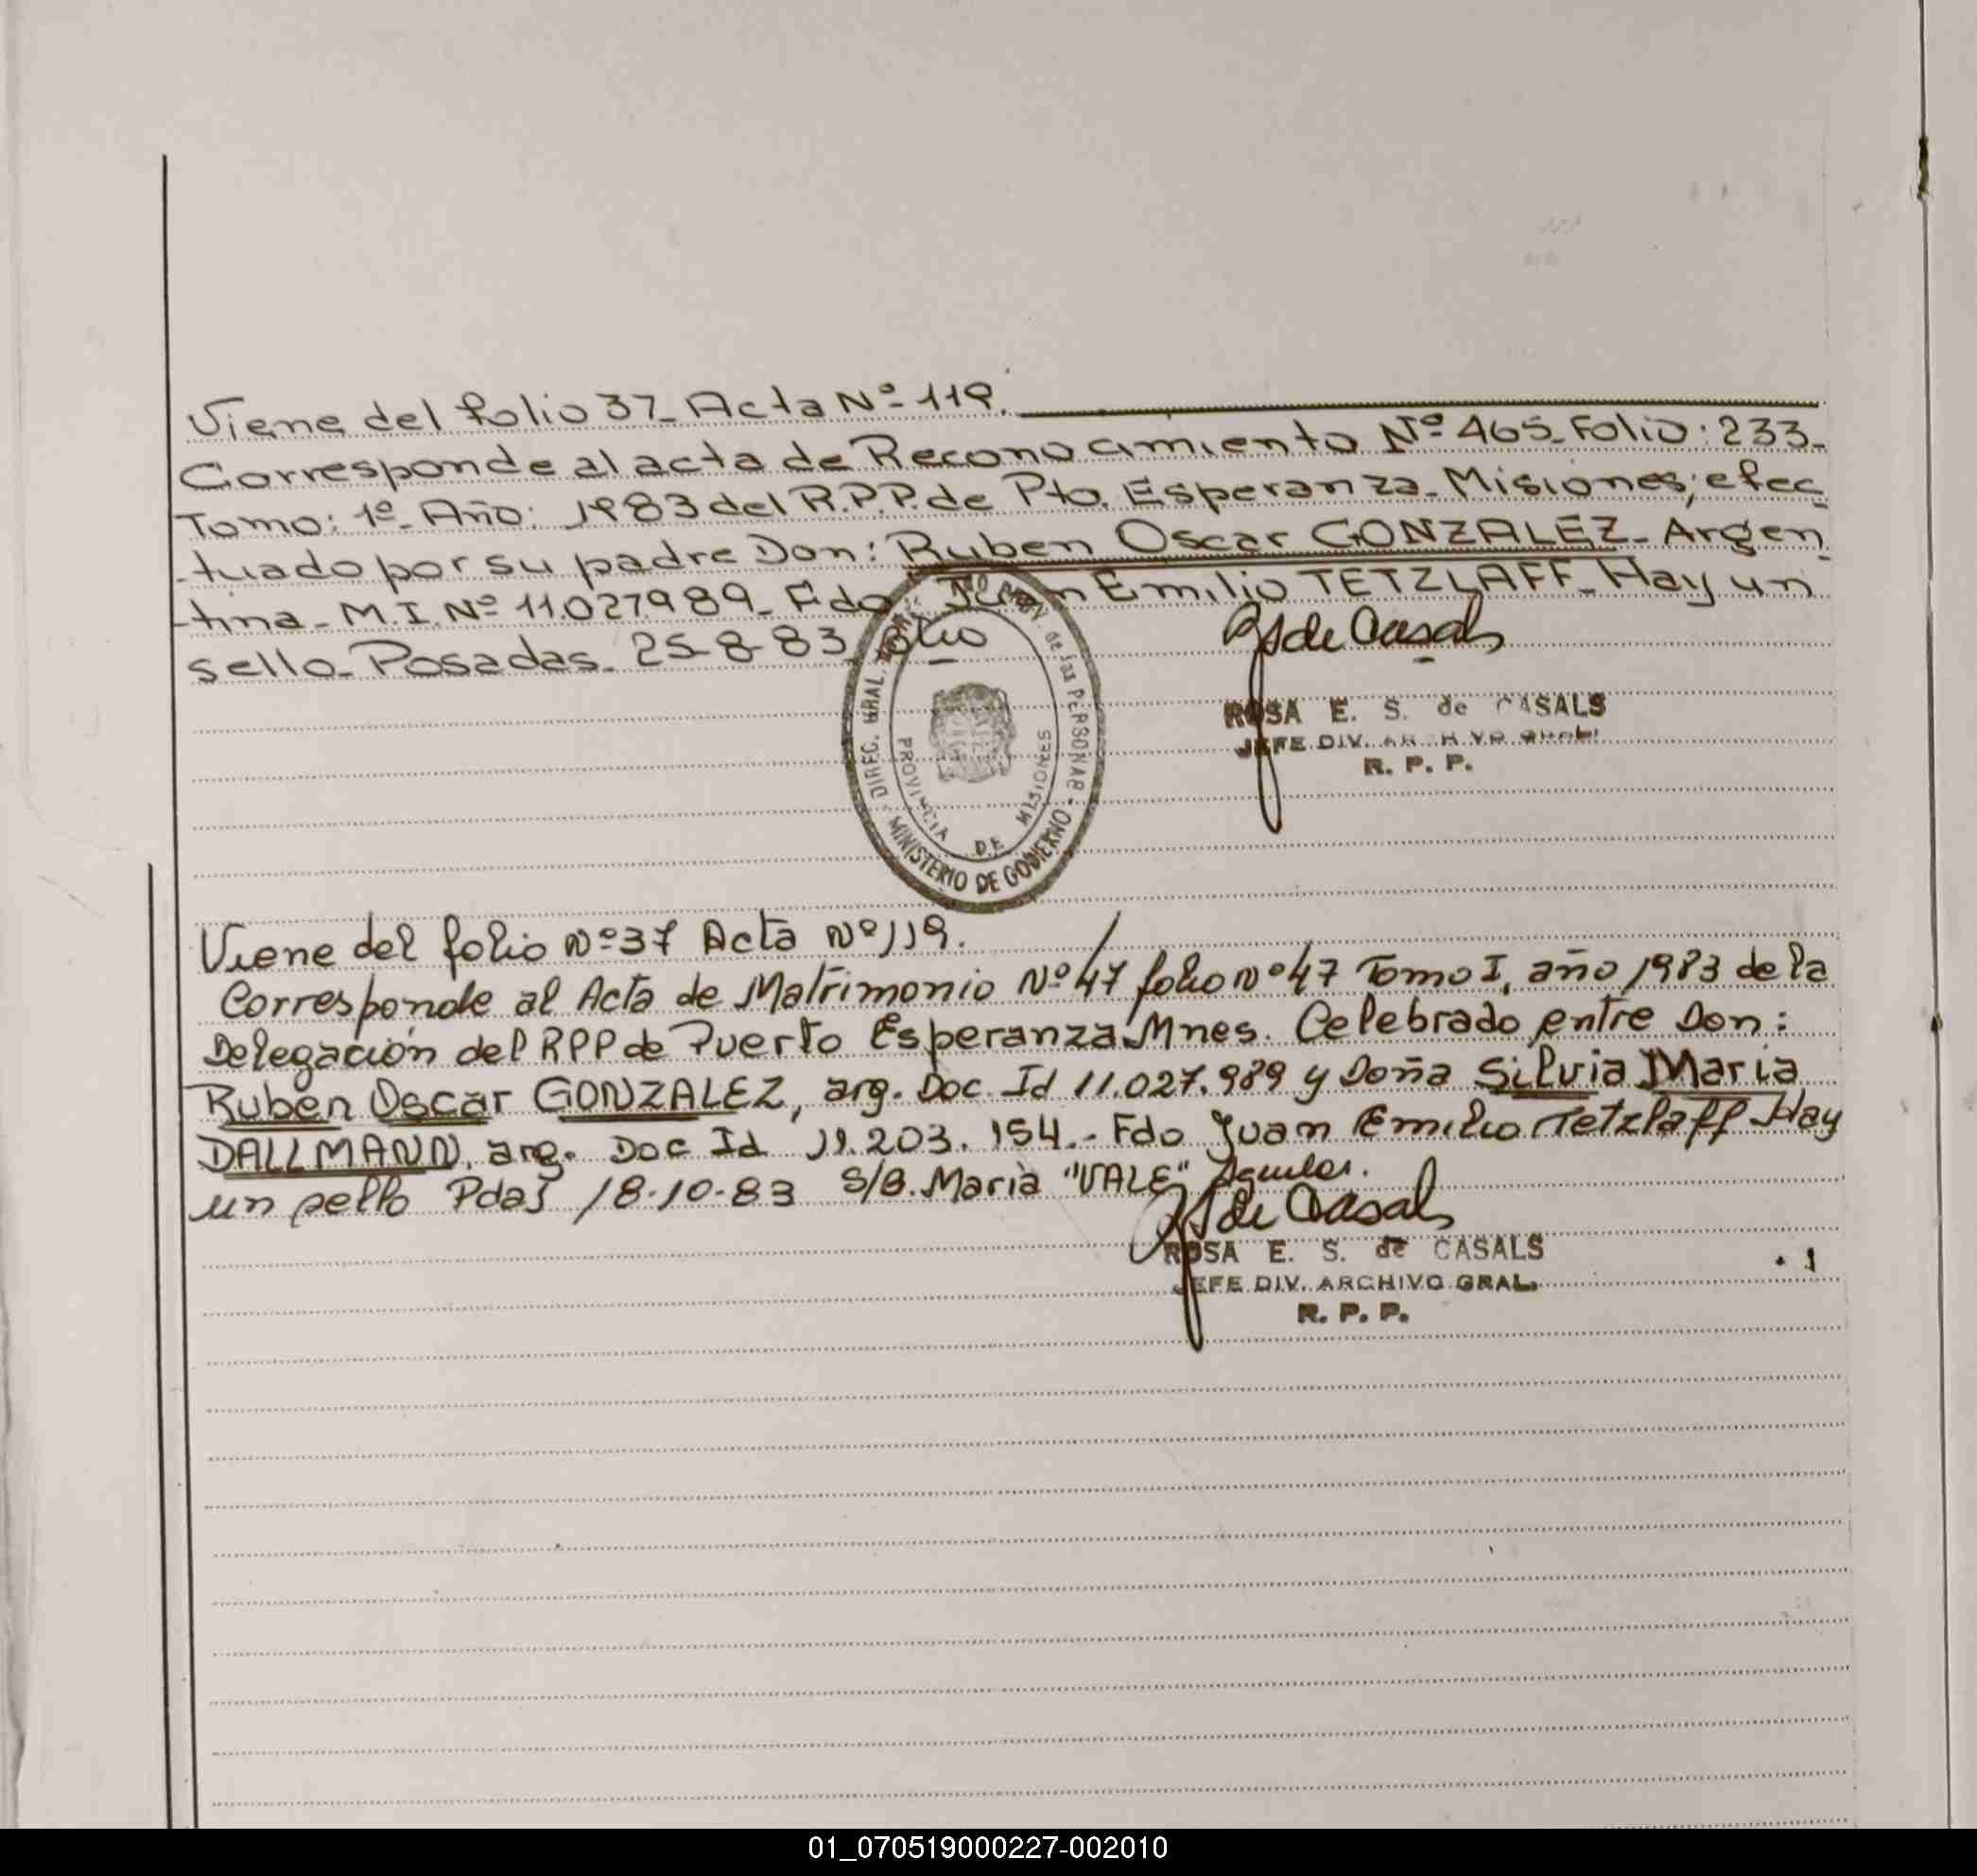 Viene del folio 37_ Acta Nº-119.
Corresponde al acta de Reconocimiento Nº 465_ Folio: 233_
Tomo: 1º_ Año: 1983 del R.P.P. de Pto. Esperanza_ Misiones; efec_
_tuado por su padre Don: Ruben Oscar GONZALEZ_ Argen_
_tina_ M.I. Nº 11.027989_ Fdo. Juan Emilio TETZLAFF_ Hay un
sello_ Posadas_ 25-8-83
R S de Casals
DIREC. GRAL. de las PERSONAS - MINISTERIO DE GOBIERNO -
PROVINCIA DE MISIONES
ROSA E. S. de CASALS
JEFE DIV. ARCHIVO GRAL.
R. P. P.
Viene del folio Nº37 Acta Nº119.
Corresponde al Acta de Matrimonio Nº 47 folio Nº 47 Tomo I, año 1983 de la
Delegación del RPP de Puerto Esperanza Mnes. Celebrado entre Don:
Ruben Oscar GONZALEZ, arg. Doc. Id 11.027.989 y Doña Silvia Maria
DALLMANN, arg. Doc Id 11.203.154.- Fdo Juan Emilio Tetzlaff Hay
un sello Pdas 18-10-83 S/B. Maria "VALE" Aguilar.
R S de Casals
ROSA E. S. de CASALS
JEFE DIV. ARCHIVO GRAL.
R. P. P.
01_070519000227-002010